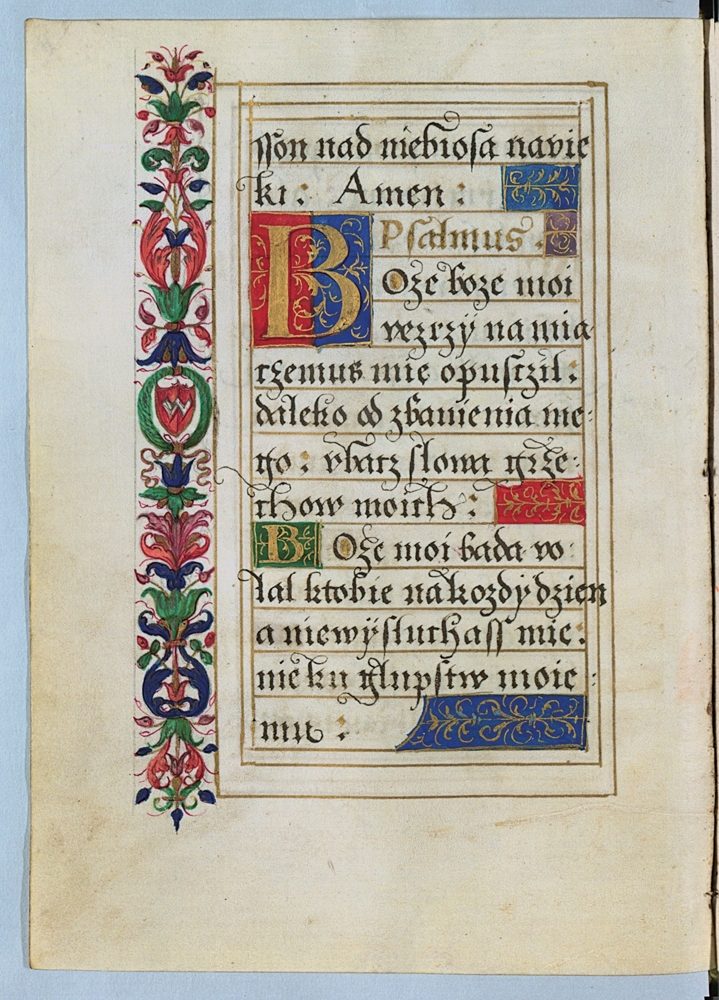 sson nad niebiosa navie
ki: Amen:
Psalmus.
BOże boże moi
vezrzÿ na mia
czemus mię opusczil:
daleko od zbavienia me-
go: vbacz slowa grze-
chow moich:
BOże moi bada vo-
lal ktobie na kozdÿ dzien
a niewÿsluchass mie:
nie ku glupstw moie-
mu:
W